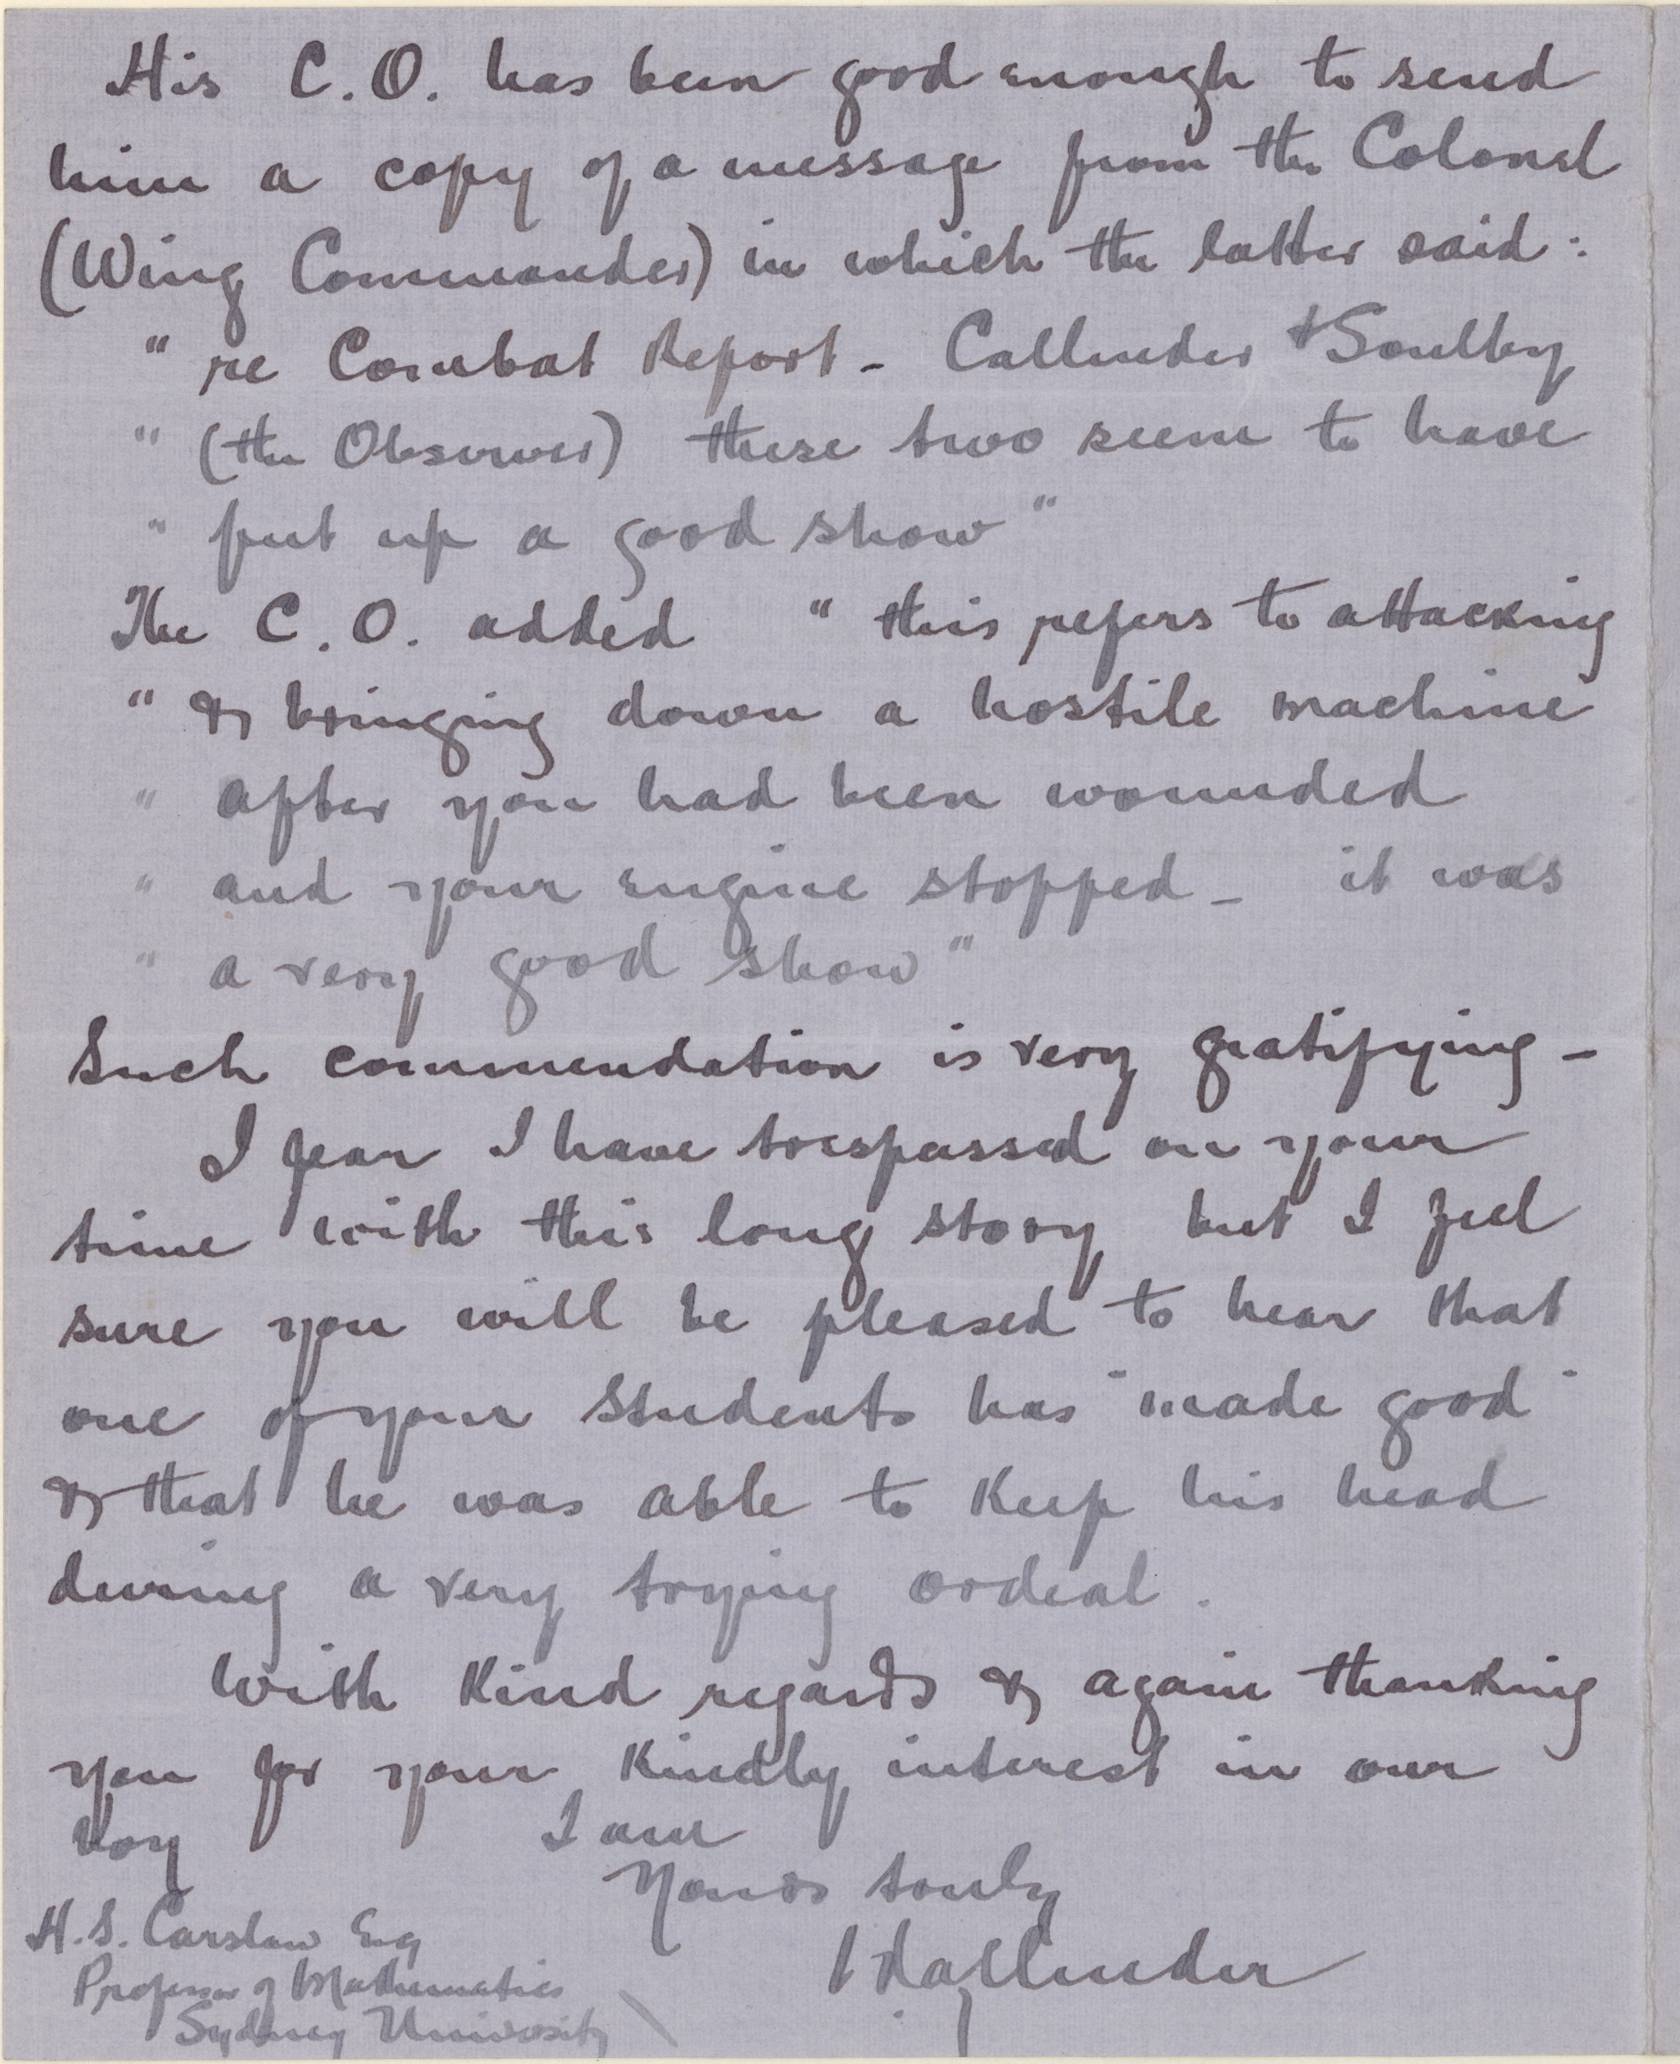 His C.O. has been good enough to send
him a copy of a message from the Colonel
(Wing Commander) in which the latter said:
" re Combat Report - Callender & Soulby
" (the Observer) these two seem to have
" put up a good show "
The C.O. added " this refers to attacking
" & bringing down a hostile machine
" after you had been wounded
" and your engine stopped - it was
" a very good show "
Such commendation is very gratifying -
I fear I have trespassed on your
time with this long story but I feel
sure you will be pleased to hear that
one of your Students has "made good"
& that he was able to keep his head
during a very trying ordeal.
With kind regards & again thanking
you for your kindly interest in our
boy I am
Yours truly
Callender
H.S. Carslaw Esq
Professor of Mathematics
Sydney University